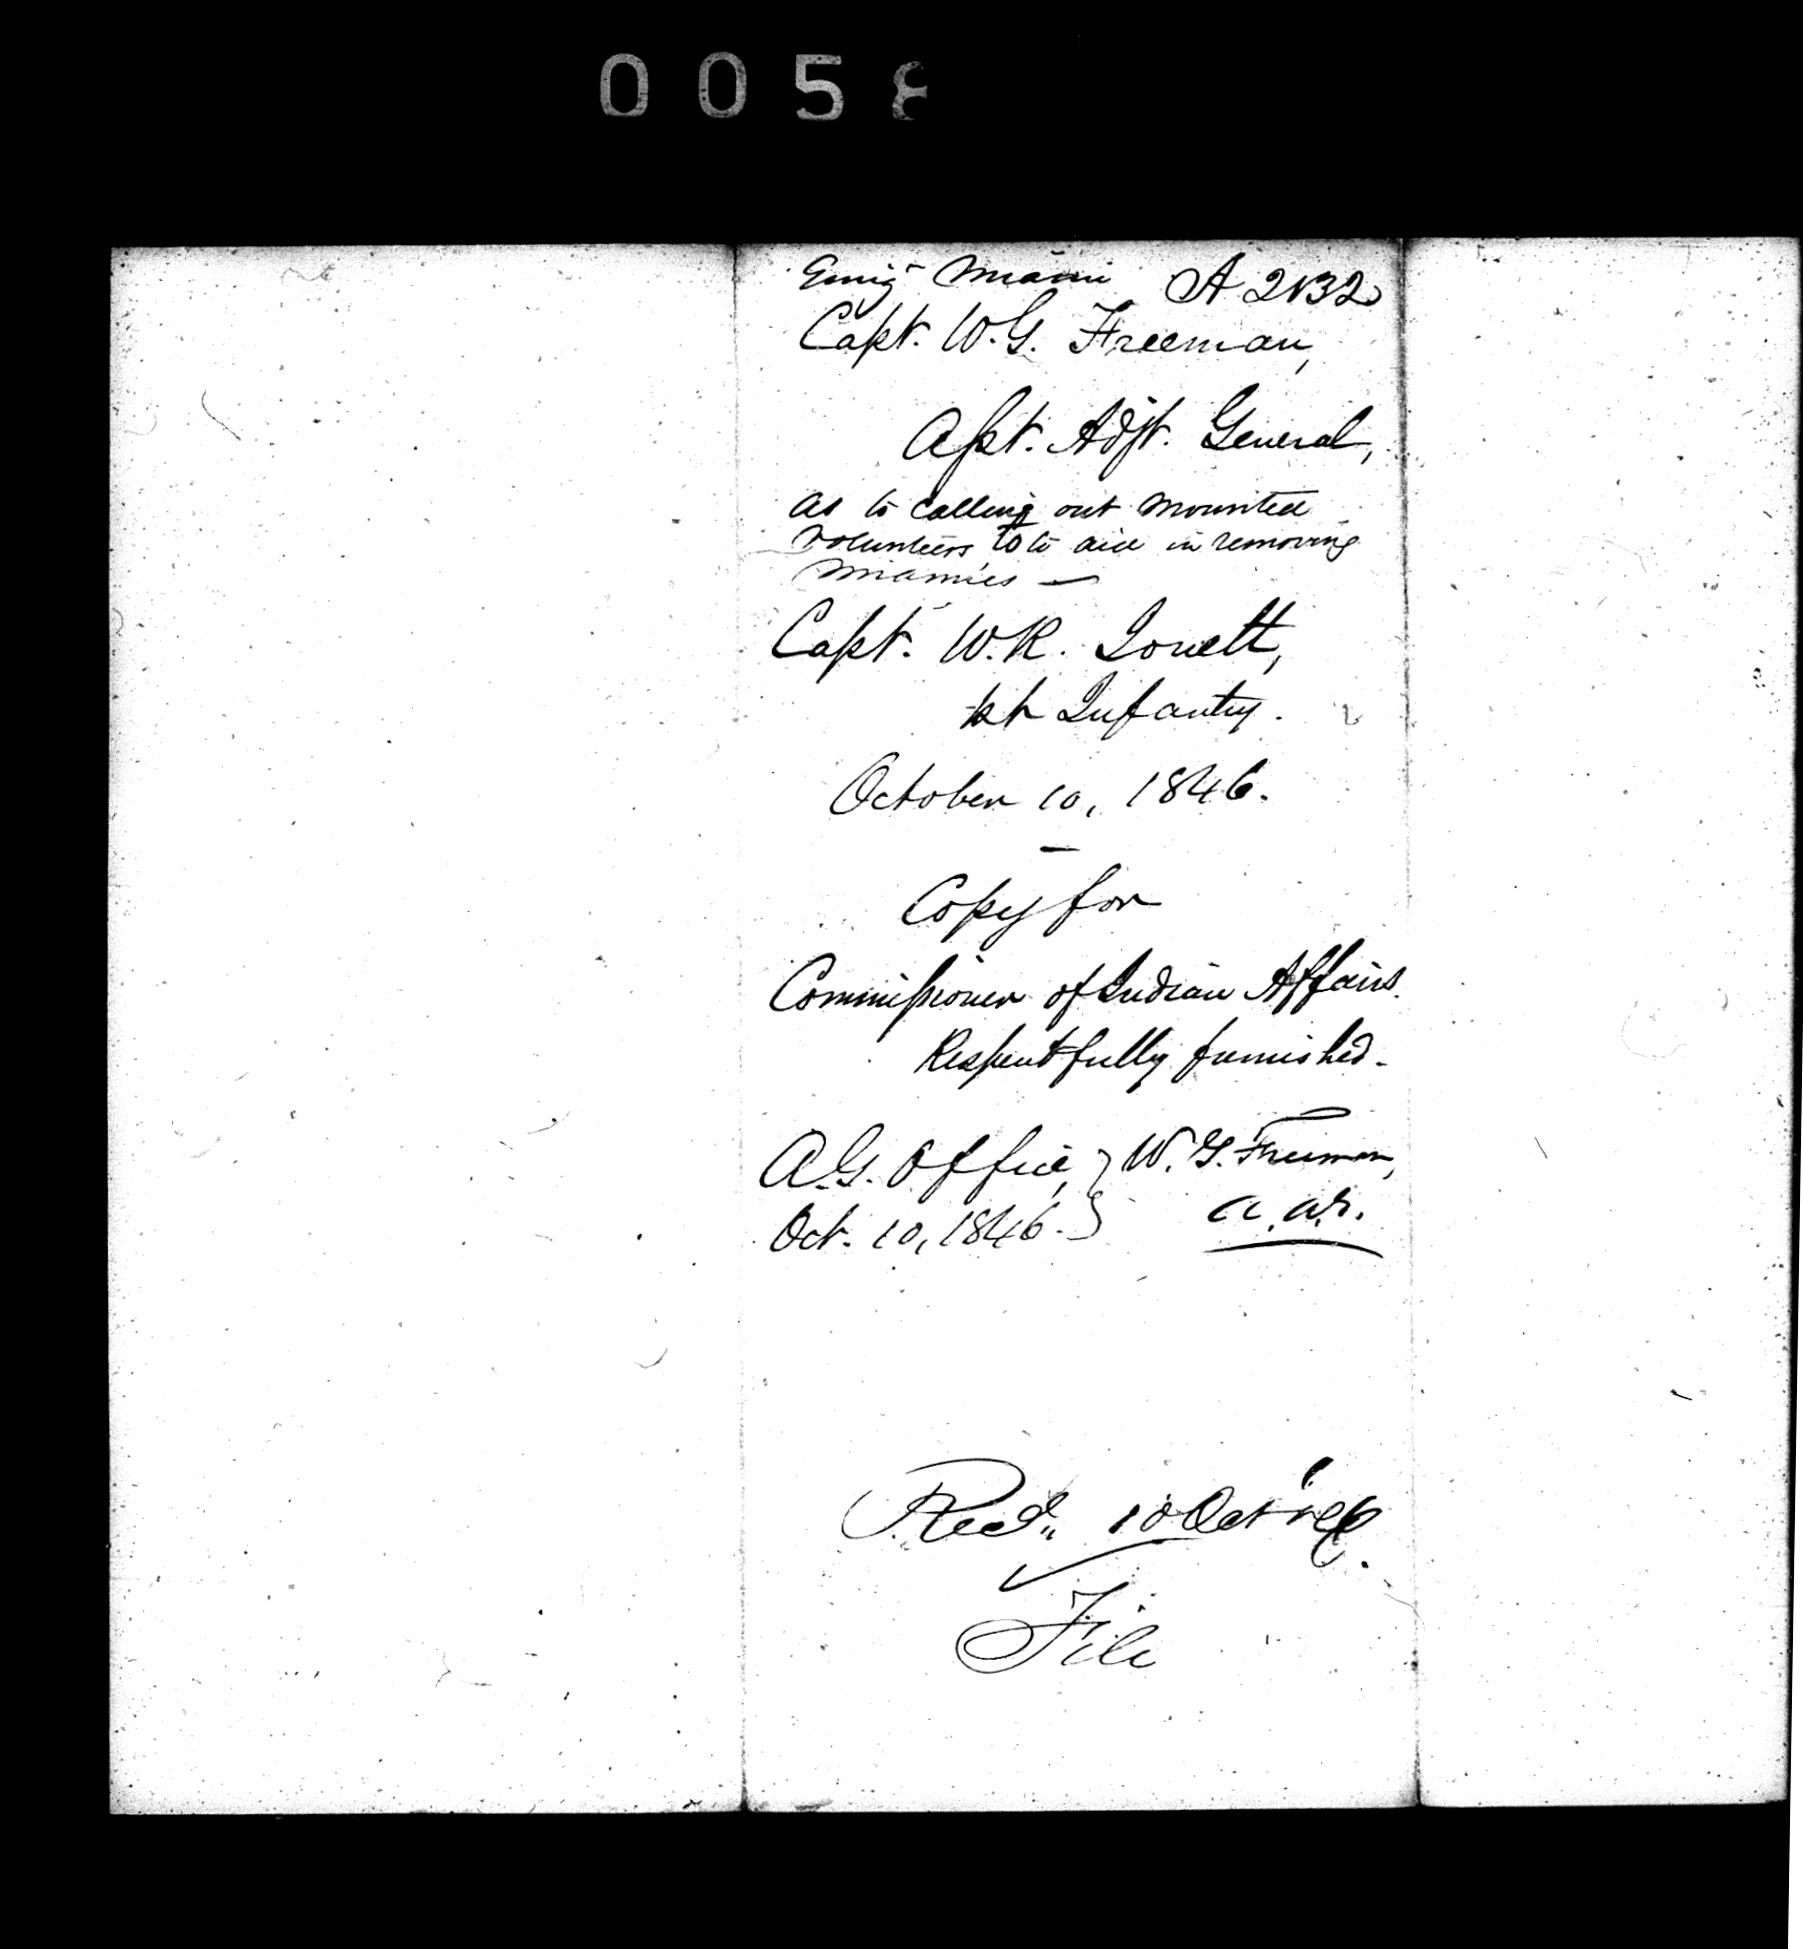 0058
Emigⁿ Miami A 2132
Capt. W. G. Freeman,
Asst. Adjt. General,
as to calling out mounted
volunteers, to to aid in removing
Miamies —
Capt. W. R. Jouett,
1st Infantry.
October 10, 1846.
—
Copy for
Commissioner of Indian Affairs.
Respectfully furnished.
A. G. Office, } W. G. Freeman,
Oct. 10, 1846. } A. A. G.
Recd. 10 Oct '46.
File